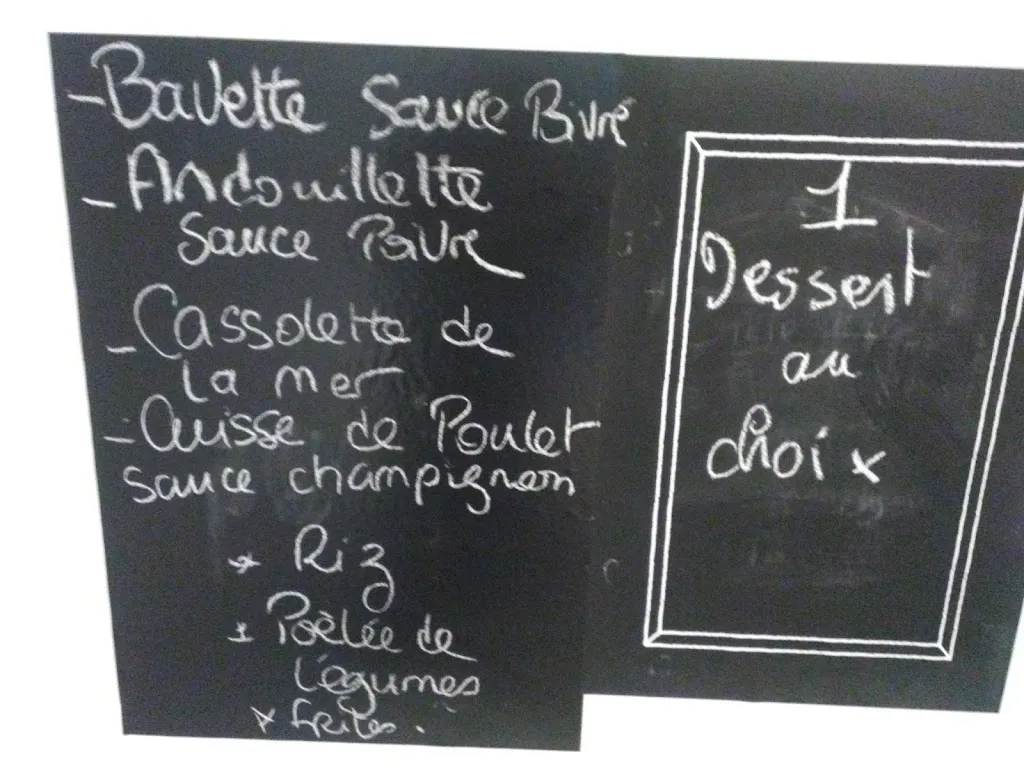 - Bavette Sauce Poivre
- Andouillette
Sauce Poivre
- Cassolette de
la mer
- Cuisse de Poulet
sauce champignon
* Riz
* Poêlée de
légumes
* frites.
1
Dessert
au
choix